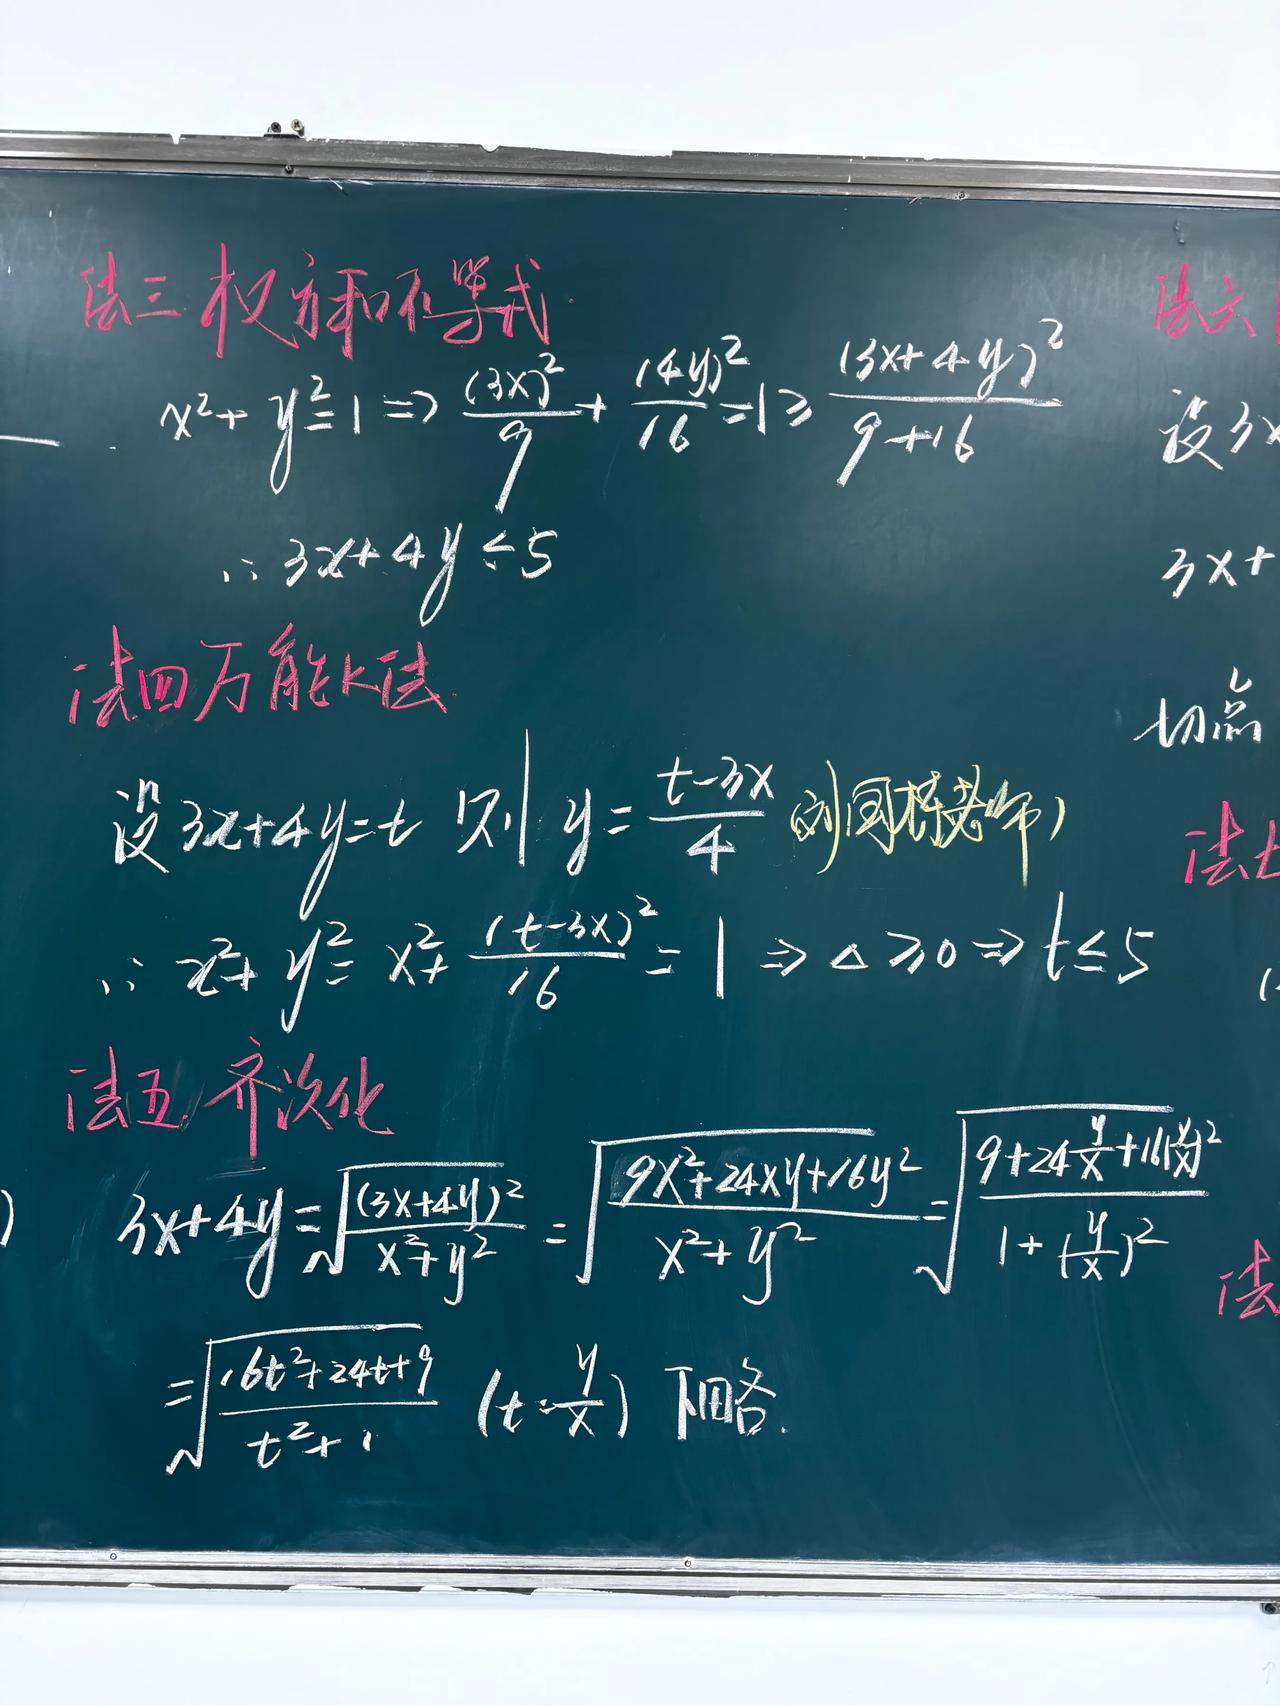 法三 权方和不等式
x²+y²=1 ⇒ (3x)²/9 + (4y)²/16 = 1 ≥ (3x+4y)²/(9+16)
∴ 3x+4y≤5
法四 万能k法
设3x+4y=t 则 y=(t-3x)/4
∴ x²+y²=x²+(t-3x)²/16=1 ⇒ △≥0 ⇒ t≤5
法五. 齐次化
3x+4y=√((3x+4y)²/(x²+y²)) = √((9x²+24xy+16y²)/(x²+y²)) = √((9+24y/x+16(y/x)²)/(1+(y/x)²))
=√((16t²+24t+9)/(t²+1)) (t=y/x) 下略.
法六
设3x
3x+
切
法七
法